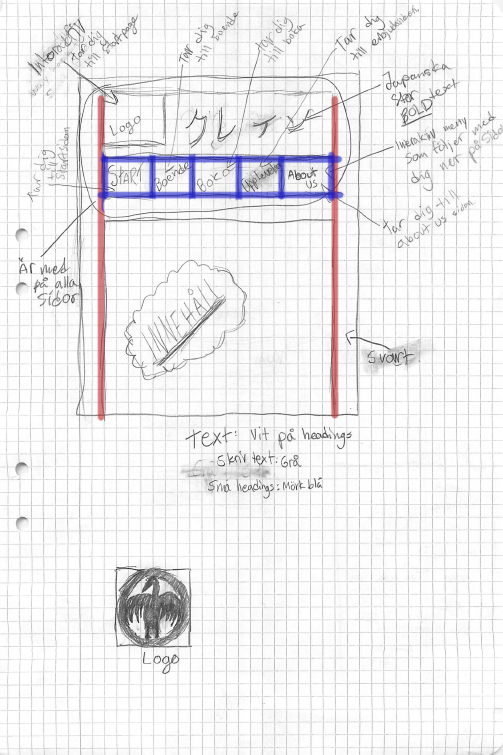 Interaktiv
tar dig
till startpage
Tar dig
till boende
tar dig
till boka
Tar dig
till
Japanska
stor
BOLD text
Logo
Interaktiv meny
som följer med
dig ner på sidor
Tar dig
till
START
Boende
Boka
Upplevelser
About
us
tar dig till
about us sidan
Är med
på alla
sidor
INNEHÅLL
Svart
Text: Vit på headings
Skriv text: Grå
Små headings: Mörk blå
Logo